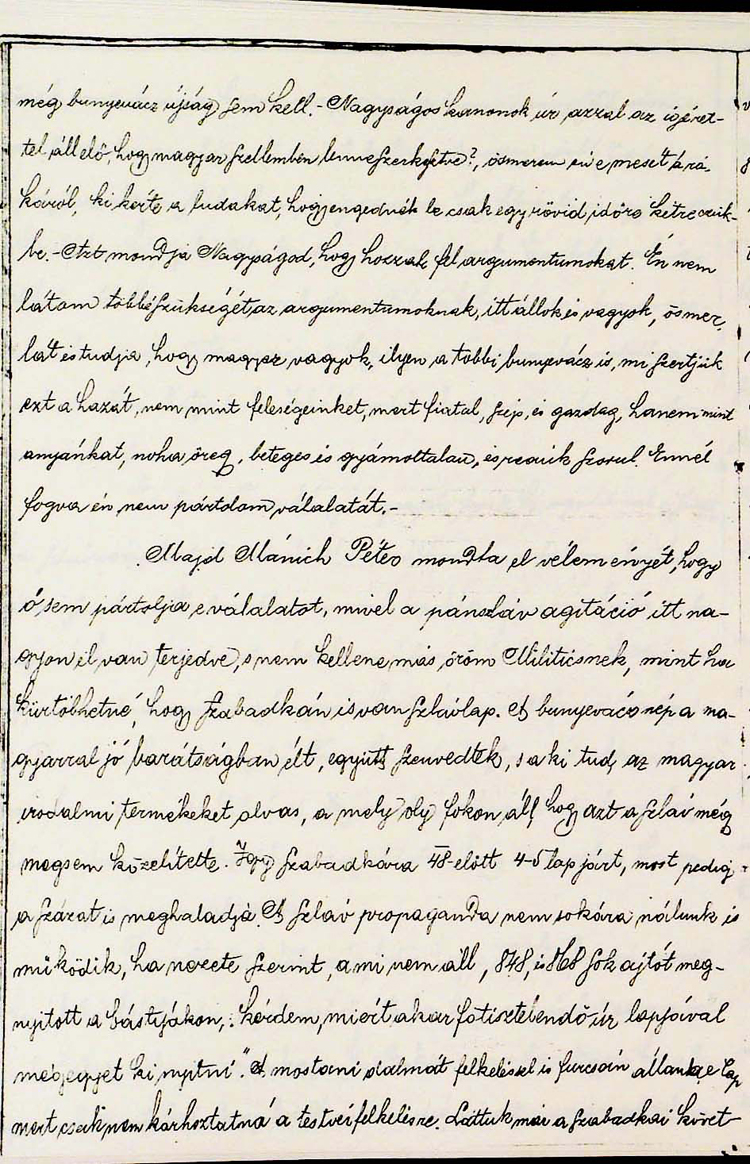 még bunyevácz újság sem kell. - Nagyságos kanonok úr azzal az igéret-
tel áll elő, hogy magyar szellemben lenne szerkesztve?, ösmerem én e mesét a ró-
káról, ki kérte a ludakat, hogy engednék be csak egy rövid időre ketreczük-
be. - Azt mondja Nagyságod, hogy hozzak fel argumentumokat. Én nem
látom többé szükségét az argumentumoknak, itt állok és vagyok, ösmer,
lát és tudja, hogy magyar vagyok, ilyen a többi bunyevácz is, mi szertjük
ezt a hazát, nem mint feleségeinket, mert fiatal, szép, és gazdag, hanem mint
anyánkat, noha öreg, beteges és gyámoltalan, és reánk szorul. Ennél
fogva én nem pártolom válalatát. -
Majd Mánich Péter mondta el véleményét, hogy
ő sem pártolja e válalatot, mivel a pánszláv agitáció itt na-
gyon el van terjedve, s nem kellene más öröm Militicsnek, mint ha
kürtölhetné, hogy Szabadkán is van szlávlap. A bunyevácz nép a ma-
gyarral jó barátságban élt, együtt szenvedtek, s aki tud, az magyar
irodalmi termékeket olvas, a mely oly fokon áll, hogy azt a szláv még
megsem közelítette. Így Szabadkára 48-előtt 4-5 lap járt, most pedig
a százat is meghaladja. A szláv propaganda nem sokára nálunk is
működik, ha nézete szerint, a mi nem áll, 848, és 868 sok ajtót meg-
nyitott a bástyákon, : kérdem, miért akar főtisztelendő úr lapjával
mégegyet ki nyitni". A mostani dalmát felkeléssel is furcsán állanka e lap
mert csak nem kárhoztatná a testvéi felkelésre. Láttuk már a szabadkai követ